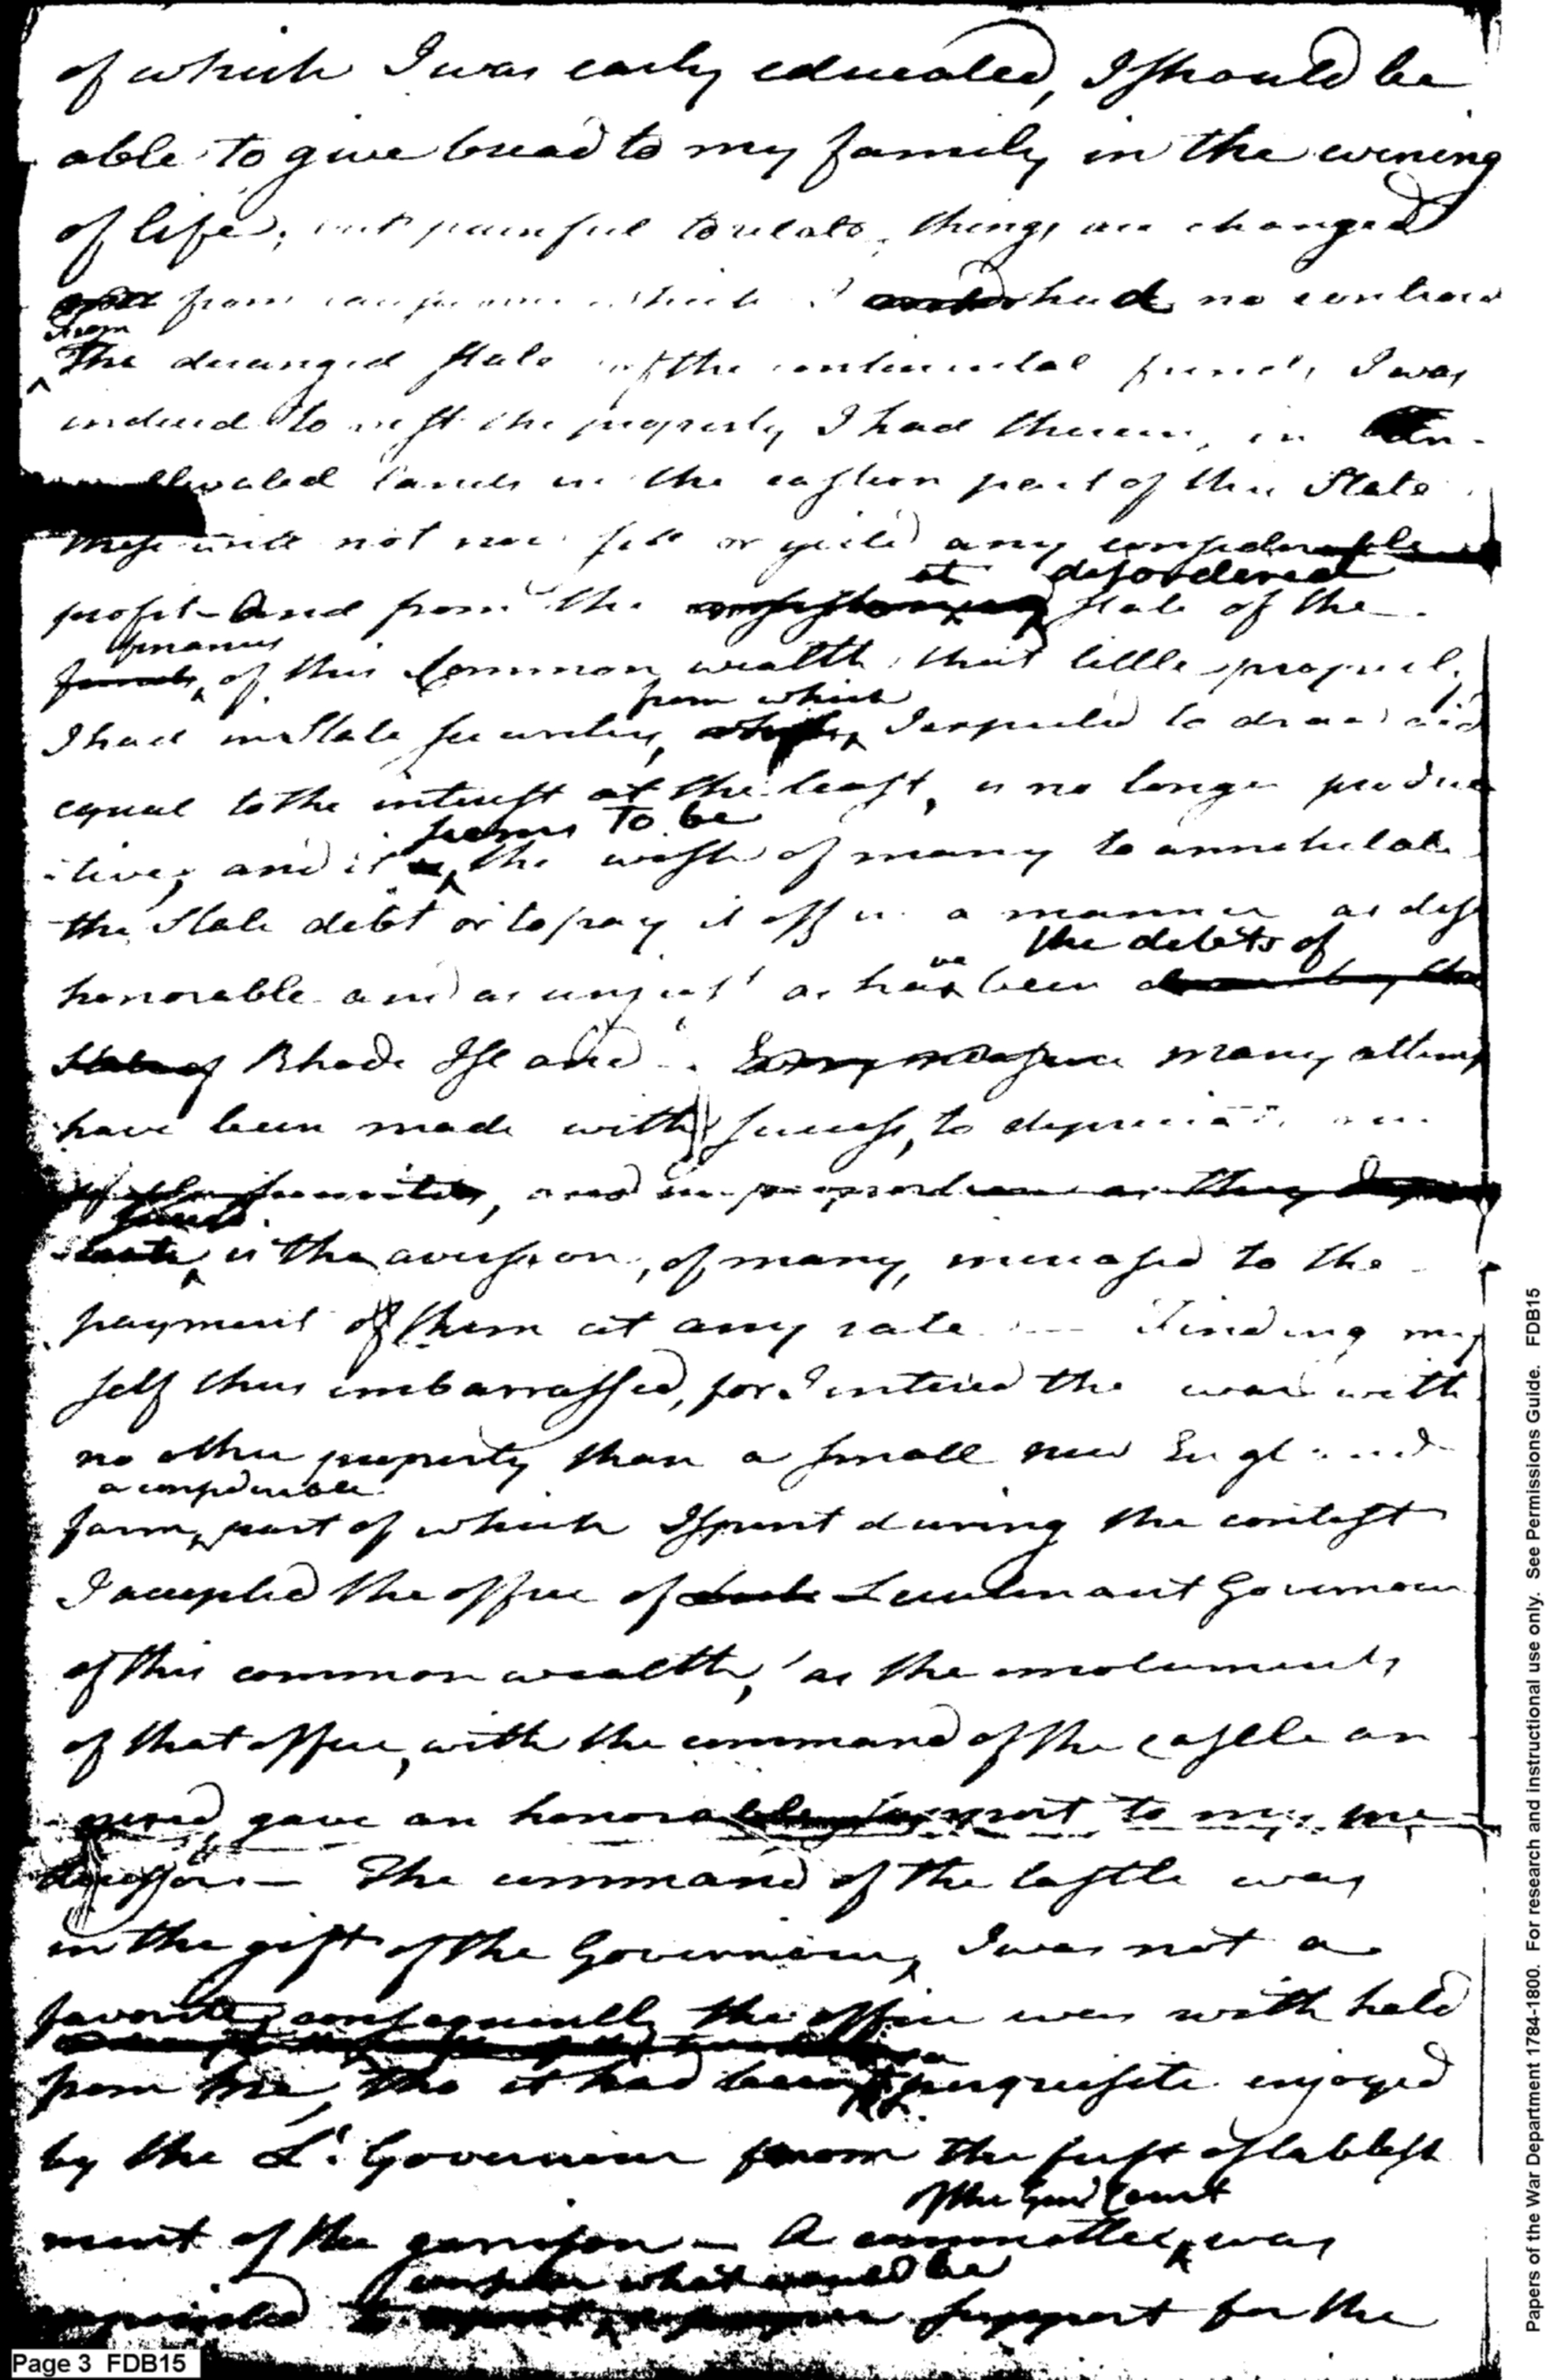 of which I was early educated, I should be
able to give bread to my family in the evening
of life; but painful to relate, things are changed
from which I had no controul
from
The deranged state of the continental funds I was
induced to vest the property I had therein, in un-
lands in the eastern part of this State
These will not now sell or yield any considerable
at disordered
profit - And from the state of the
finances
funds, of this Common wealth that little property
from which
I had in State securities, I expected to draw aid
equal to the interest at the least, is no longer produc
seems to be
-tive, and it the wish of many to annehilate
the State debt or to pay it off in a manner as dis
the debts of
ve
honorable and as unjust as has been done by the
State of Rhode Island. Every measure many attemp
have been made with success, to depreciate
securities, and in proportion as they depre
found
is the aversion, of many, increased to the
payment of them at any rate - Finding my
self thus embarrassed, for I entered the war with
no other property than a small new England
a considerable
farm, part of which I spent during the contest
I accepted the office of Lieutenant Governour
of this common wealth, as the emoluments
of that office, with the command of the castle an
nexed, gave an honorable support to my pre
decessors - The command of the Castle was
in the gift of the Governour, I was not a
favorite, consequently the office was with held
from me, tho it had been a perquisite enjoyed
by the Lt. Governour from the first establish
of the Genl Court
ment of the garrison - A committee, was
consider what would be
appointed to support for the
Page 3 FDB15
Papers of the War Department 1784-1800. For research and instructional use only. See Permissions Guide. FDB15